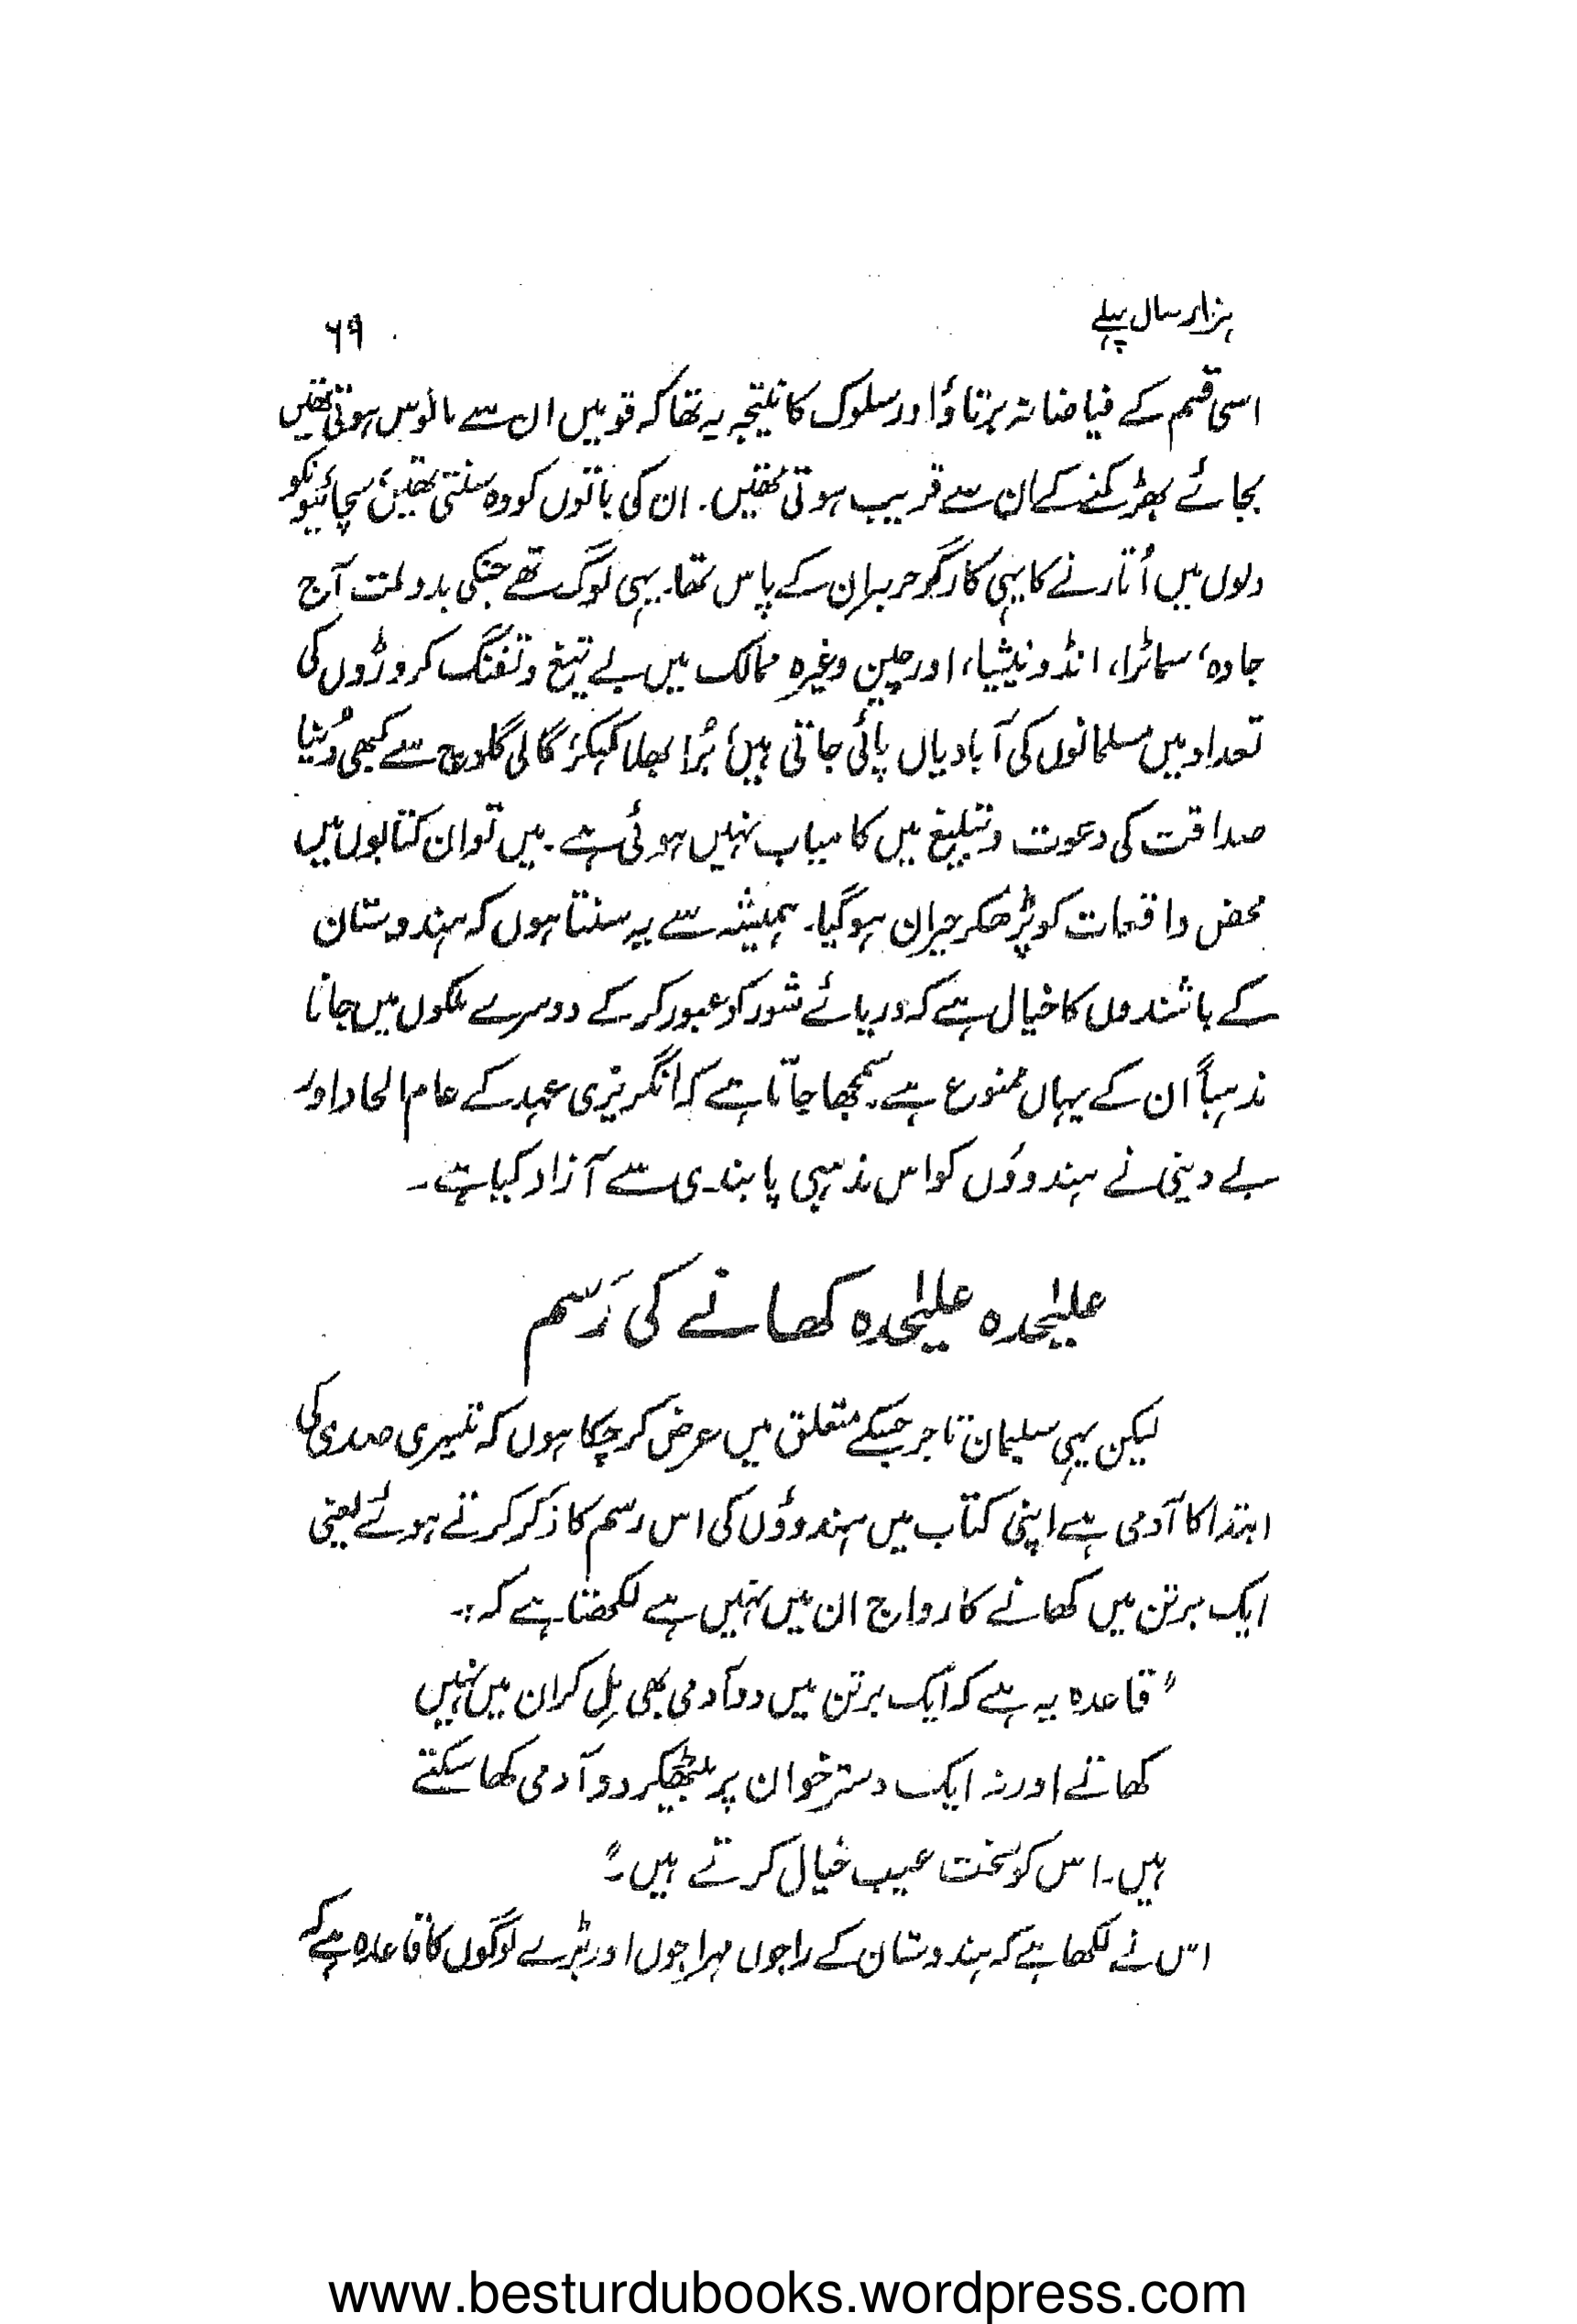 ہزار سال پہلے
۶۹
اسی قسم کے فیاضانہ برتاؤ اور سلوک کا نتیجہ یہ تھا کہ قومیں ان سے مانوس ہوتی تھیں
بجائے بھڑکنے کے ان سے قریب ہوتی تھیں۔ ان کی باتوں کو وہ سنتی تھیں، سچائیونکو
دلوں میں اُتارنے کا یہی کارگر حربہ ان کے پاس تھا۔ یہی لوگ تھے جنکی بدولت آج
جاوہ، سماٹرا، انڈونیشیا، اور چین وغیرہ ممالک میں بے تیغ و تفنگ کروڑوں کی
تعداد میں مسلمانوں کی آبادیاں پائی جاتی ہیں، بُرا بھلا کہکر، گالی گلوج سے کبھی دُنیا
صداقت کی دعوت و تبلیغ میں کامیاب نہیں ہوئی ہے۔ میں تو ان کتابوں میں
محض واقعات کو پڑھکر حیران ہوگیا۔ ہمیشہ سے یہ سنتا ہوں کہ ہندوستان
کے باشندوں کا خیال ہے کہ دریائے شور کو عبور کر کے دوسرے ملکوں میں جانا
مذہباً ان کے یہاں ممنوع ہے۔ سمجھا جاتا ہے کہ انگریزی عہد کے عام الحاد اور
بے دینی نے ہندوؤں کو اس مذہبی پابندی سے آزاد کیا ہے۔
علیٰحدہ علیٰحدہ کھانے کی رَسم
لیکن یہی سلیمان تاجر جسکے متعلق میں عرض کر چکا ہوں کہ تیسری صدی کی
ابتدا کا آدمی ہے اپنی کتاب میں ہندوؤں کی اس رسم کا ذکر کرتے ہوئے یعنی
ایک برتن میں کھانے کا رواج ان میں نہیں ہے لکھتا ہے کہ:۔
"قاعدہ یہ ہے کہ ایک برتن میں دو آدمی بھی مِل کر ان میں نہیں
کھاتے اور نہ ایک دسترخوان پر بیٹھکر دو آدمی کھا سکتے
ہیں۔ اس کو سخت عیب خیال کرتے ہیں۔"
اس نے لکھا ہے کہ ہندوستان کے راجوں مہراجوں اور بڑے لوگوں کا قاعدہ ہے کہ
www.besturdubooks.wordpress.com